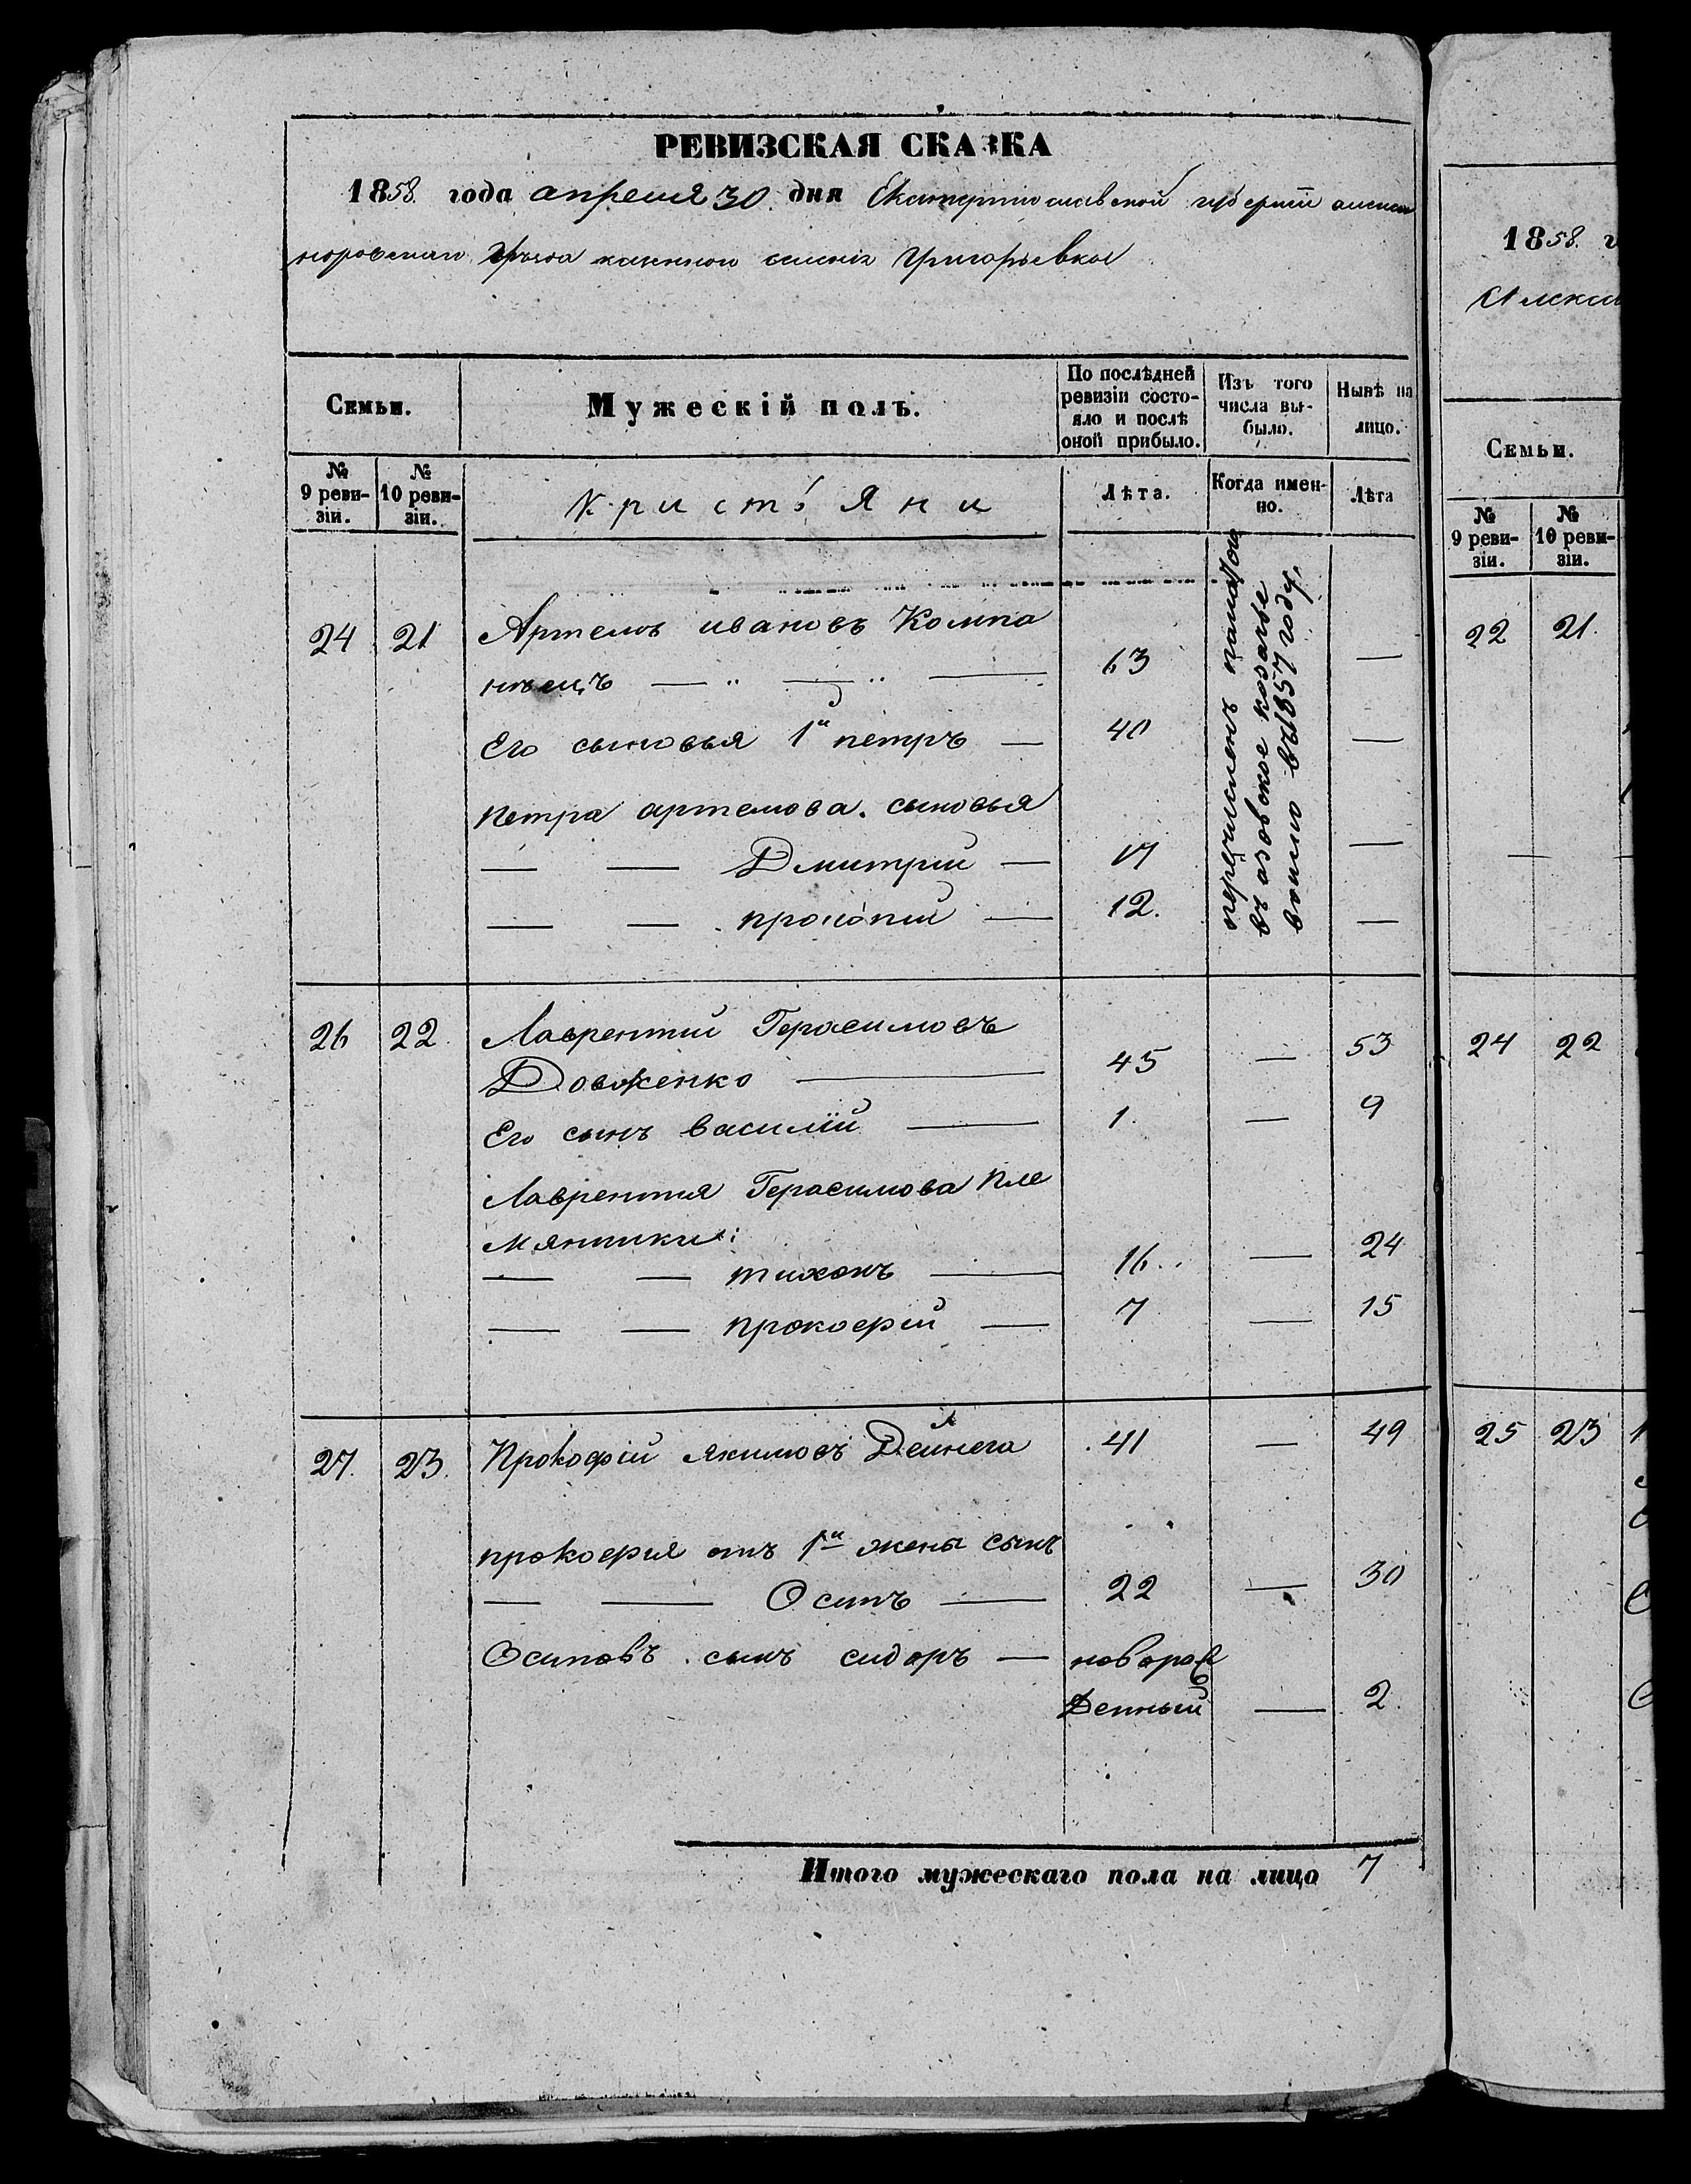 РЕВИЗСКАЯ СКАЗКА
1858. года апреля 30. дня Екатеринославской губернии алексан
норовскаго уѣзда казенного селенія Григорьевки
Семьи.
Мужескій полъ.
По послѣдней ревизіи состо-
яло и послѣ оной прибыло.
Изъ того числа вы-
было.
Нынѣ на лицо.
№ 9 реви-
зіи.
№ 10 реви-
зіи.
Кристьяни
Лѣта.
Когда имен-
но.
Лѣта
24 21 Артемъ ивановъ Компа
нѣецъ — „ — „ — 63 —
Его сыновья 1й петръ — 40 —
петра артемова. сыновья
— — Дмитрий — 17 —
— — прокопий — 12. —
перечисленъ
въ азовское козачье
войско въ 1857 году.
26 22. Лаврентий Герасимовъ
Довженко — 45 — 53
Его сынъ василій — 1. — 9
Лаврентия Герасимова пле
мянники:
— — тихонъ — 16. — 24
— — прокофій — 7 — 15
27. 23. Прокофій якимовъ Дейнега 41 — 49
прокофия отъ 1й жены сынъ
— — Осипъ — 22 — 30
Осиповъ сынъ сидоръ — новорож
денный — 2.
Итого мужескаго пола на лицо 7
1858. г
Алекса
Семьи.
№ 9 реви-
зіи.
№ 10 реви-
зіи.
22 21.
24 22
25 23